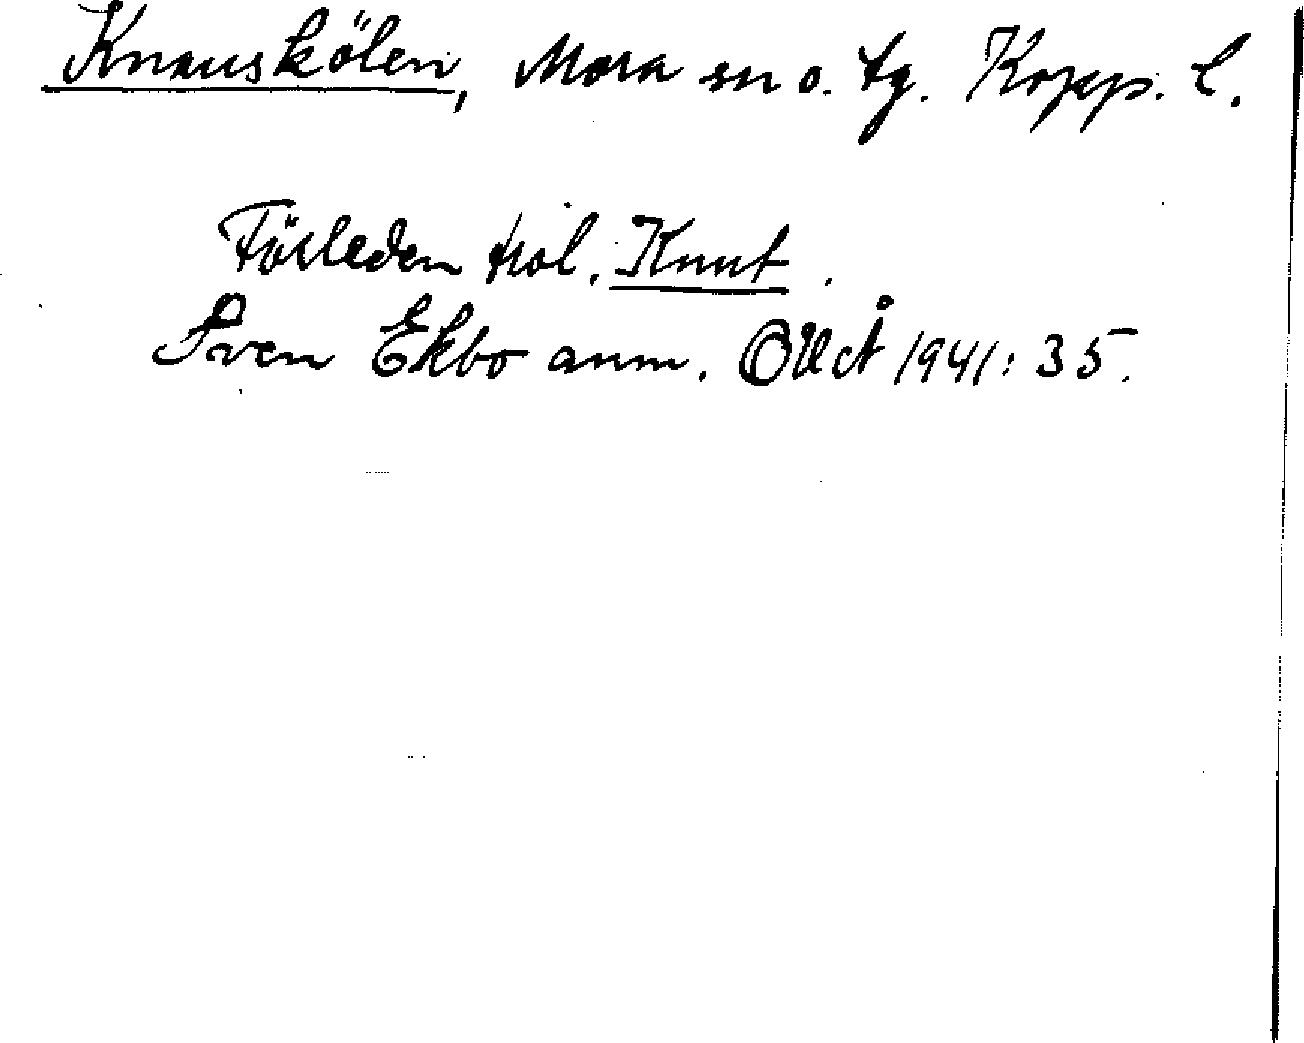 Knauskölen, Mora sn o. tg. Kopp. l.
Förleden trol. Knut.
Sven Ekbo anm. OUÅ 1941: 35.